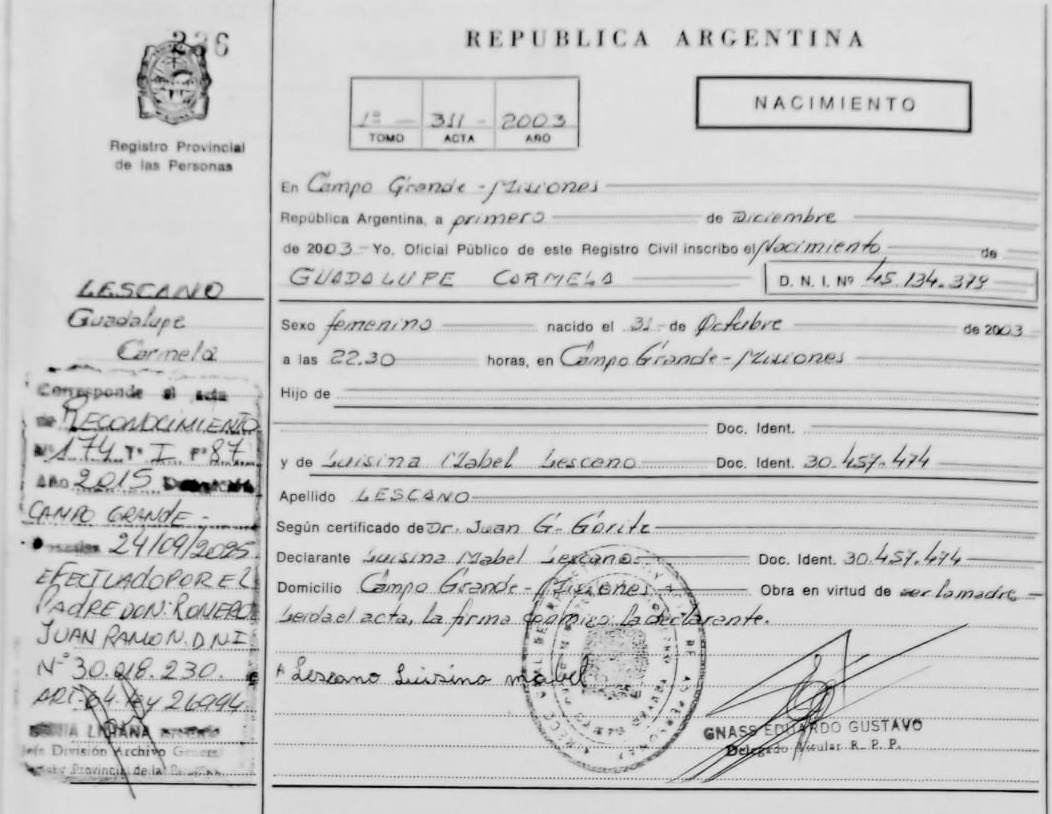 336
REPUBLICA ARGENTINA
Registro Provincial
de las Personas
1º - 311 - 2003
TOMO ACTA AÑO
NACIMIENTO
En Campo Grande - Misiones
República Argentina, a primero de Diciembre
de 2003 - Yo, Oficial Público de este Registro Civil inscribo el Nacimiento de
GUADALUPE CARMELA D. N. I. Nº 45.134.379
Sexo femenino nacido el 31 - de Octubre de 2003
a las 22.30 horas, en Campo Grande - Misiones
Hijo de
Doc. Ident.
y de Luisina Mabel Lescano Doc. Ident. 30.457.474
Apellido LESCANO
Según certificado de Dr. Juan G. Goritz
Declarante Luisina Mabel Lescano Doc. Ident. 30.457.474
Domicilio Campo Grande - Misiones Obra en virtud de ser la madre -
Leida el acta, la firma conmigo la declarante.
Lescano Luisina mabel
GNASS EDUARDO GUSTAVO
Delegado Titular R. P. P.
LESCANO
Guadalupe
Carmela
Corresponde al acta
de RECONOCIMIENTO
Nº 174 Tº I Fº 87
Año 2015 Delegación
CAMPO GRANDE -
Posadas 24/09/2025
EFECTUADO POR EL
PADRE DON: ROMERO
JUAN RAMON. D.N.I
Nº 30.018.230.
ART-64-Ley 26994
LILIANA
Jefe División Archivo General
Provincial de las Personas